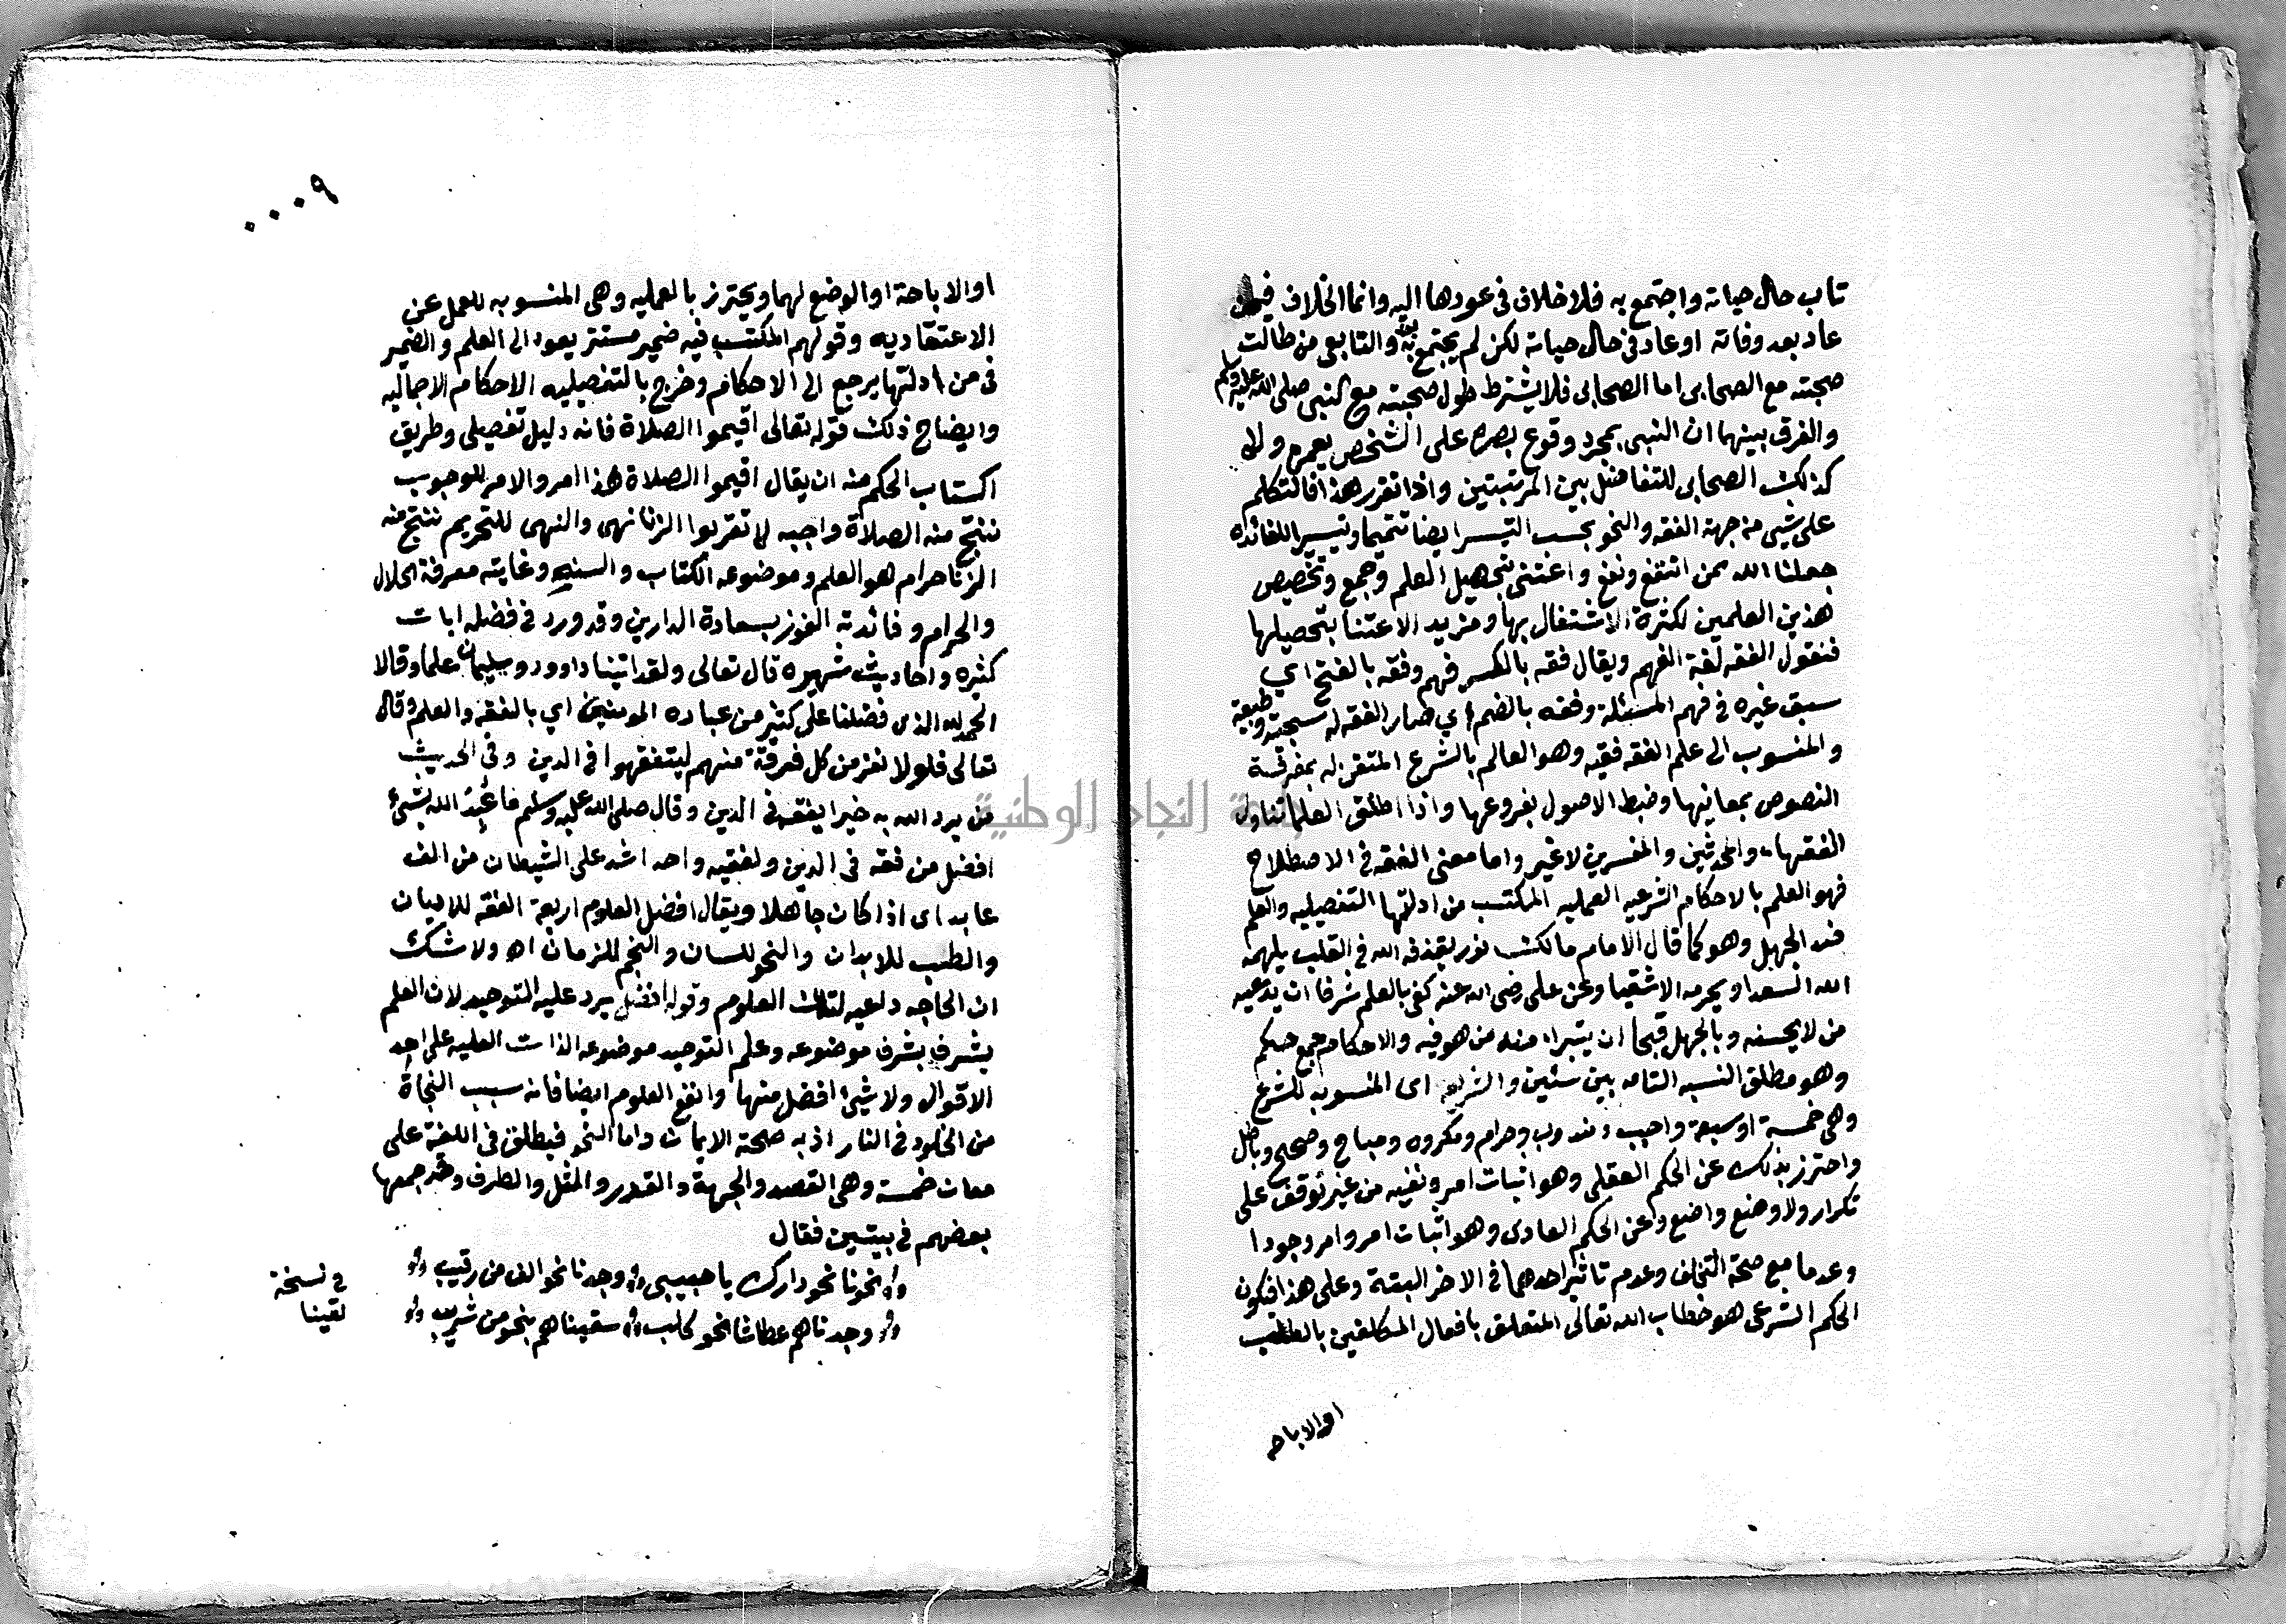 تاب حال حياته واجتمع به فلا خلاف في عودها اليه وانما الخلاف فيمن
عاد بعد وفاته او عاد في حال حياته لكن لم يجتمع به والتابعي من طالت
صحبته مع الصحابي اما الصحابي فلا يشترط طول صحبته مع النبي صلى الله عليه وسلم
والفرق بينهما ان النبي بمجرد وقوع بصره على الشخص يعمره ولا
كذلك الصحابي للتفاضل بين المرتبتين واذا تقرر هذا فالنتكلم
على شيء من جهة الفقه والنحو بحسب التيسر ايضا تتميما وتيسيرا للفائده
جعلنا الله ممن انتفع ونفع واعتنى بتحصيل العلم وجمع وتخصيص
هذين العلمين لكثرة الاشتغال بها ومزيد الاعتنا بتحصيلها
فنقول الفقه لغة الفهم ويقال فقه بالكسر فهم وفقه بالفتح اي
سبق غيره في فهم المسئلة وفقه بالضم اي صار الفقه له سجية وطبيعة
والمنسوب الى علم الفقه فقيه وهو العالم بالشرع المتقن له بمعرفة
النصوص بمعانيها وضبط الاصول بفروعها واذا اطلق العلما تناول
الفقهاء والمحدثين والمفسرين لا غير واما معنى الفقه في الاصطلاح
فهو العلم بالاحكام الشرعيه العمليه المكتسب من ادلتها التفصيليه والعلم
ضد الجهل وهو كما قال الامام مالك نور يقذفه الله في القلب يلهمه
الله السعدا ويحرمه الاشقيا وعن علي رضي الله عنه كفى بالعلم شرفا ان يدعيه
من لا يحسنه وبالجهل قبحا ان يتبرا منه من هو فيه والاحكام جمع حكم
وهو مطلق النسبه التامه بين شئين والشرعيه اي المنسوبه للشرع
وهي خمسة او سبعة واجب ومندوب وحرام ومكروه ومباح وصحيح وباطل
واحترز بذلك عن الحكم العقلي وهو اثبات امر ونفيه من غير توقف على
تكرار ولا وضع واضع وعن الحكم العادي وهو اثبات امر وامر وجودا
وعدما مع صحة التخلف وعدم تاثير احدهما في الاخر البتة وعلى هذا فيكون
الحكم الشرعي هو خطاب الله تعالى المتعلق بافعال المكلفين بالطلب
او الاباحه
٠٠٠٩
او الاباحة او الوضع لهما ويحترز بالعمليه وهي المنسوبه للعمل عن
الاعتقاديه وقولهم المكتسب فيه ضمير مستتر يعود الى العلم والضمير
في من ادلتها يرجع الى الاحكام وخرج بالتفصيليه الاحكام الاجماليه
وايضاح ذلك قوله تعالى اقيموا الصلاة فانه دليل تفصيلي وطريق
اكتساب الحكم منه ان يقال اقيموا الصلاة هذا امر والامر للوجوب
ننتج منه الصلاة واجبه لا تقربوا الزنا نهي والنهي للتحريم ننتج منه
الزنا حرام هو العلم وموضوعه الكتاب والسنه وغايته معرفة الحلال
والحرام وفائدته الفوز بسعادة الدارين وقد ورد في فضله ايات
كثيره واحاديث شهيره قال تعالى ولقد اتينا داوود وسليمان علما وقالا
الحمد لله الذي فضلنا على كثير من عباده المومنين اي بالفقه والعلم وقال
تعالى فلولا نفر من كل فرقة منهم ليتفقهوا في الدين وفي الحديث
من يرد الله به خيرا يفقهه في الدين وقال صلى الله عليه وسلم ما عُبد الله بشيء
افضل من فقه في الدين ولفقيه واحد اشد على الشيطان من الف
عابد اي اذا كان جاهلا ويقال افضل العلوم اربعة الفقه للاديان
والطب للابدان والنحو للسان والنجم للزمان اه ولا شك
ان الحاجه داعيه لتلك العلوم وقوله افضل يرد عليه التوحيد لان العلم
يشرف بشرف موضوعه وعلم التوحيد موضوعه الذات العليه على احد
الاقوال ولا شيء افضل منها وانفع العلوم ايضا فانه سبب النجاة
من الخلود في النار اذ به صحة الايمان واما النحو فيطلق في اللغة على
معان خمسة وهي القصد والجهة والقدر والمثل والطرف وقد جمعها
بعضهم في بيتين فقال
نحونا نحو دارك يا حبيبي وجدنا نحو الف من رقيب
وجدناهم عطاشا نحو كلب سقيناهم بنحو من شريب
في نسخة
لقينا